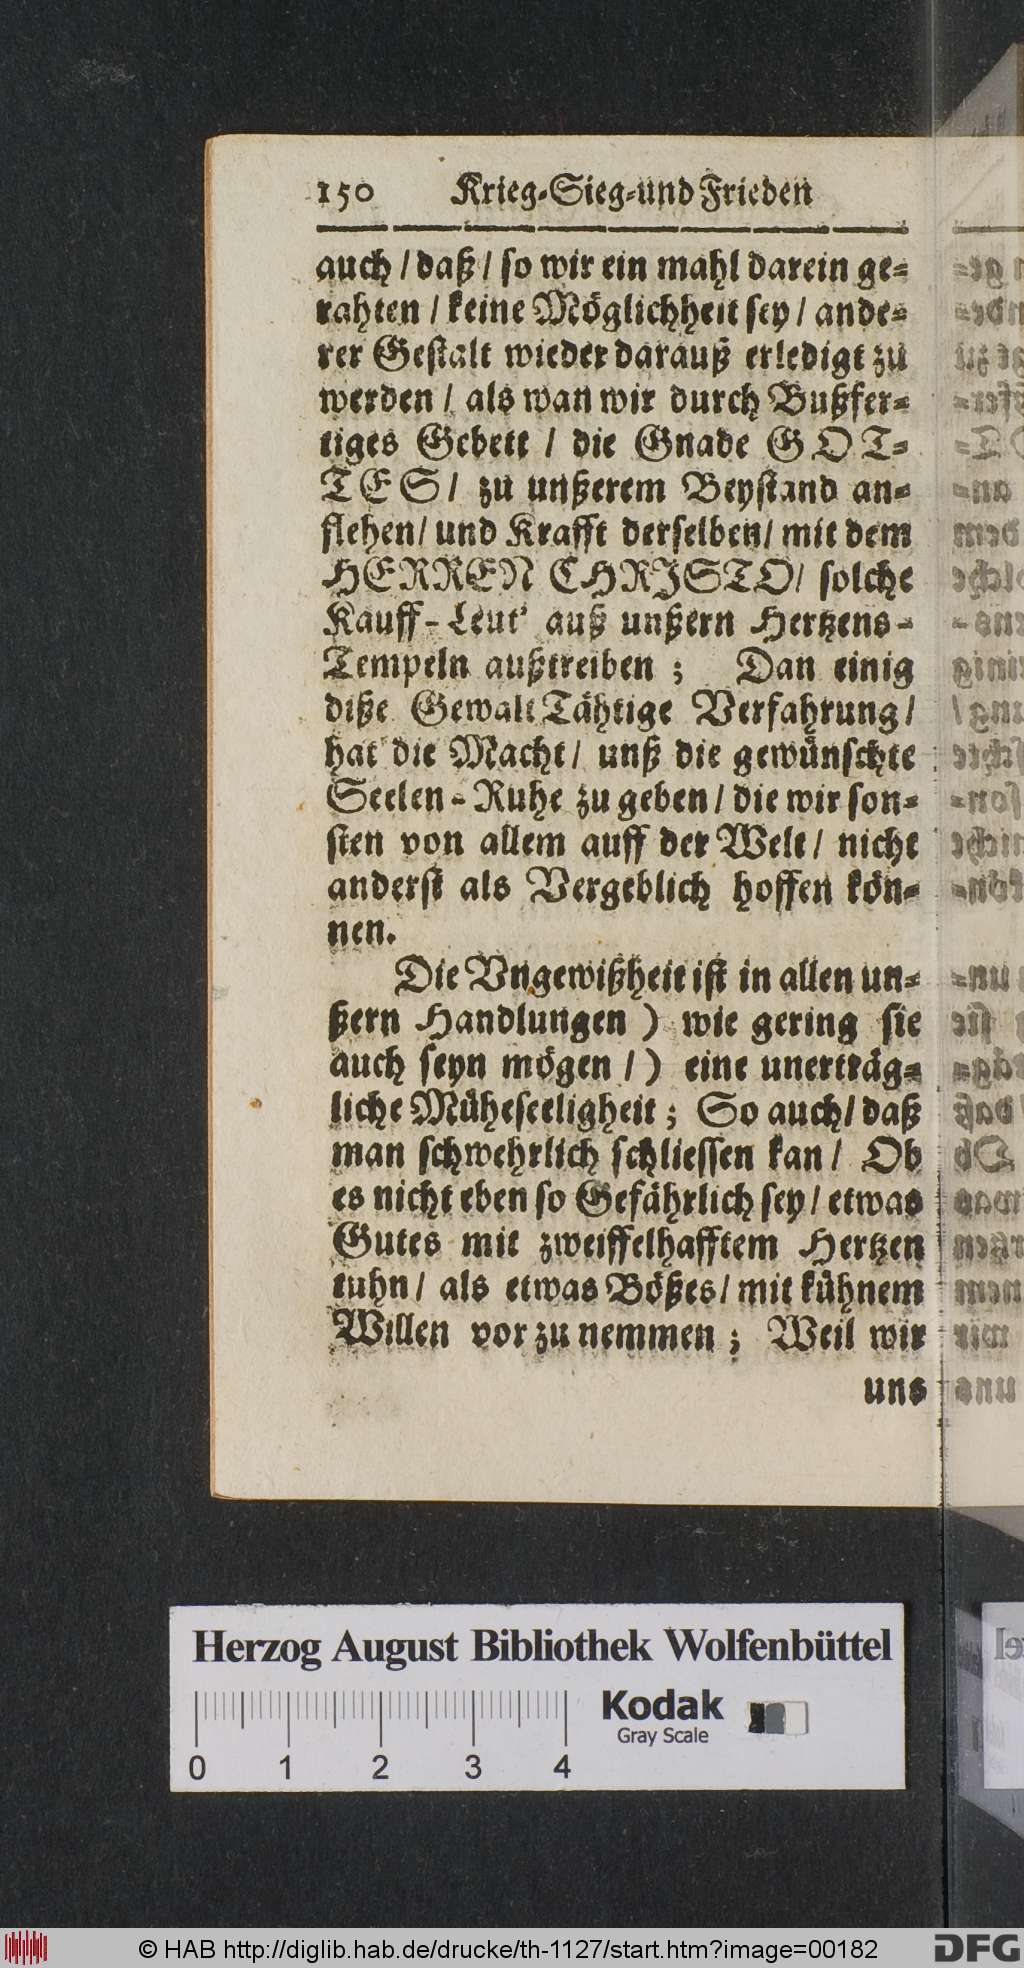 150 Krieg-Sieg-und Frieden
auch / daß / so wir ein mahl darein ge-
rahten / keine Möglichheit sey / ande-
rer Gestalt wieder darauß erledigt zu
werden / als wan wir durch Bußfer-
tiges Gebett / die Gnade GOT-
TES / zu unßerem Beystand an-
flehen / und Krafft derselben / mit dem
HERREN CHRISTO / solche
Kauff-Leut' auß unßern Hertzens-
Tempeln außtreiben ; Dan einig
diße Gewalt Tähtige Verfahrung /
hat die Macht / unß die gewünschte
Seelen-Ruhe zu geben / die wir son-
sten von allem auff der Welt / nicht
anderst als Vergeblich hoffen kön-
nen.
Die Vngewißheit ist in allen un-
ßern Handlungen ) wie gering sie
auch seyn mögen / ) eine unerträg-
liche Müheseeligheit ; So auch / daß
man schwehrlich schliessen kan / Ob
es nicht eben so Gefährlich sey / etwas
Gutes mit zweiffelhafftem Hertzen
tuhn / als etwas Bößes / mit kühnem
Willen vor zu nemmen ; Weil wir
uns
Herzog August Bibliothek Wolfenbüttel
Kodak
Gray Scale
0 1 2 3 4
© HAB http://diglib.hab.de/drucke/th-1127/start.htm?image=00182
DFG